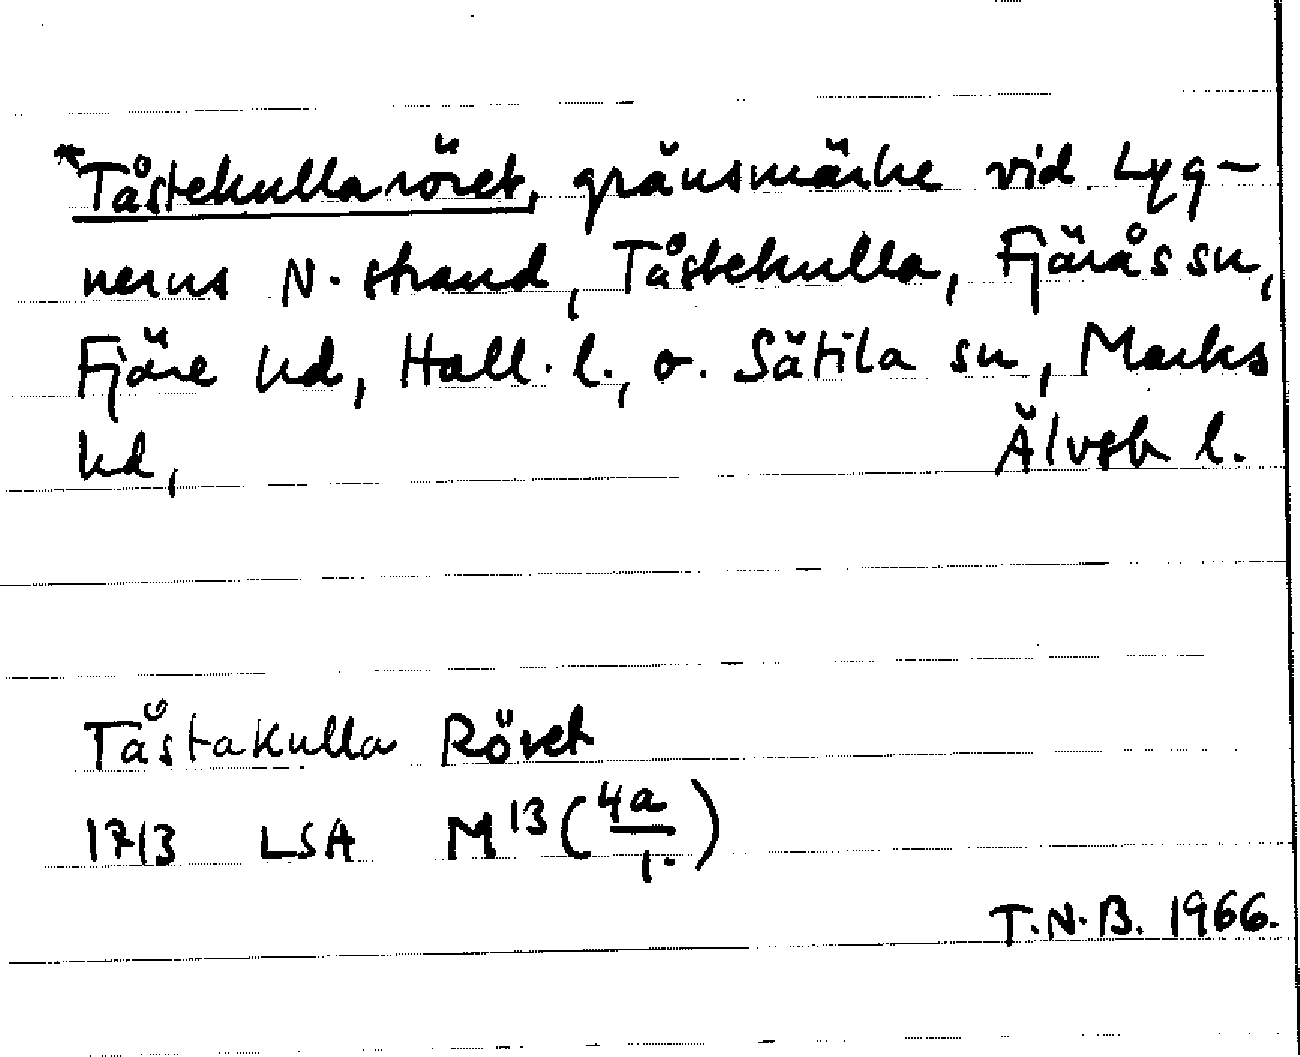 *Tåstekullaröret, gränsmärke vid Lyg-
nerns N. strand, Tåstekulla, Fjärås sn,
Fjäre hd, Hall. l., o. Sätila sn, Marks
hd, Älvsb l.
Tåstakulla Röret
1713 LSA M13 (4a/1.)
T.N.B. 1966.